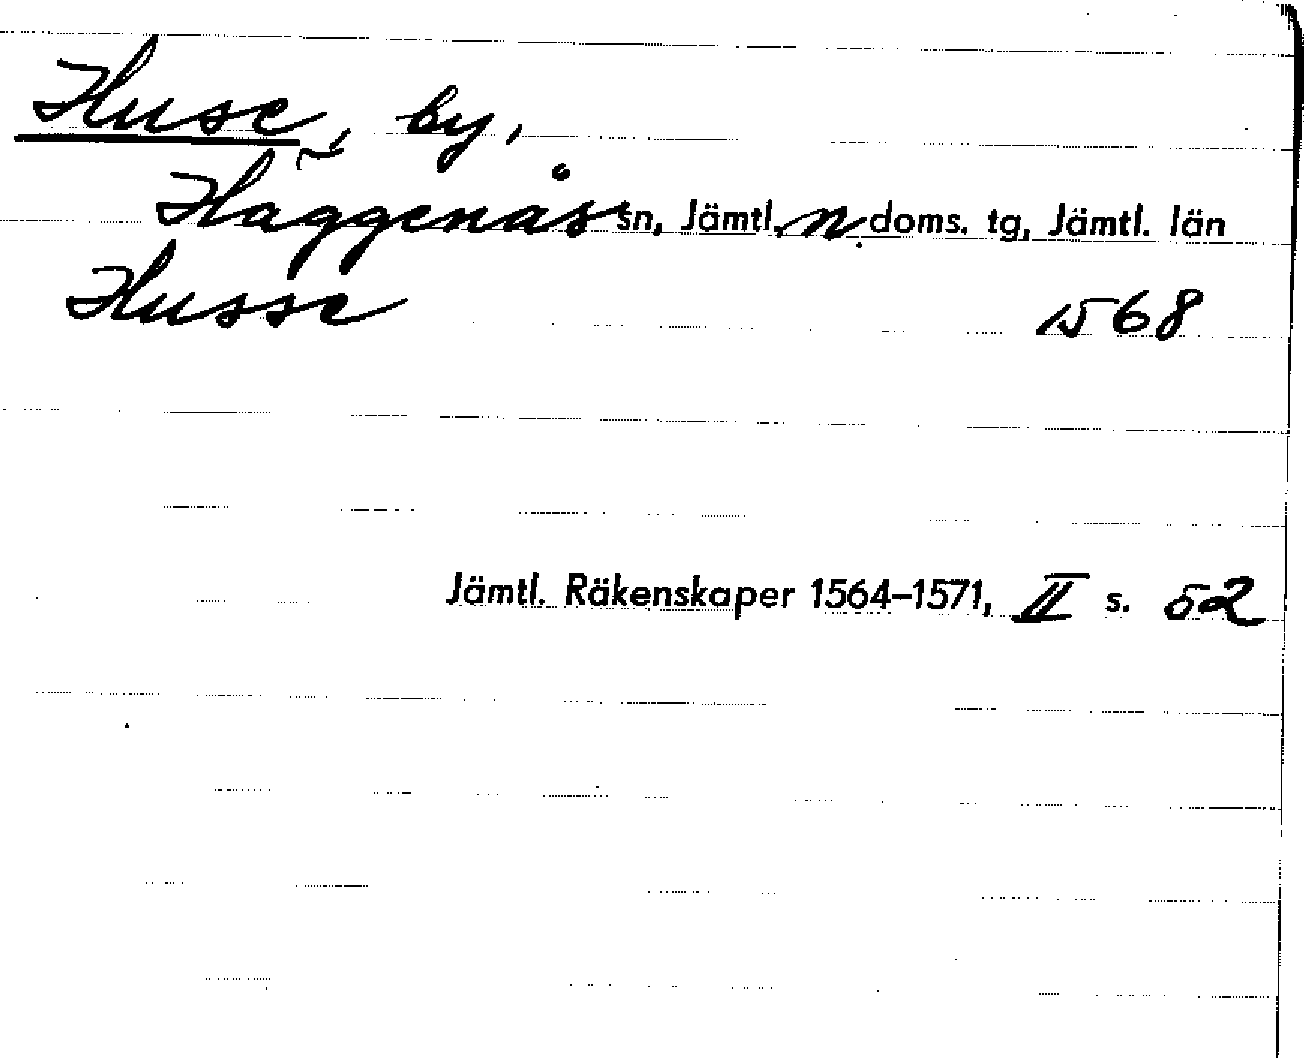 Huse, by,
Häggenås sn, Jämtl. n. doms. tg, Jämtl. län
Husse 1568
Jämtl. Räkenskaper 1564–1571, II s. 52